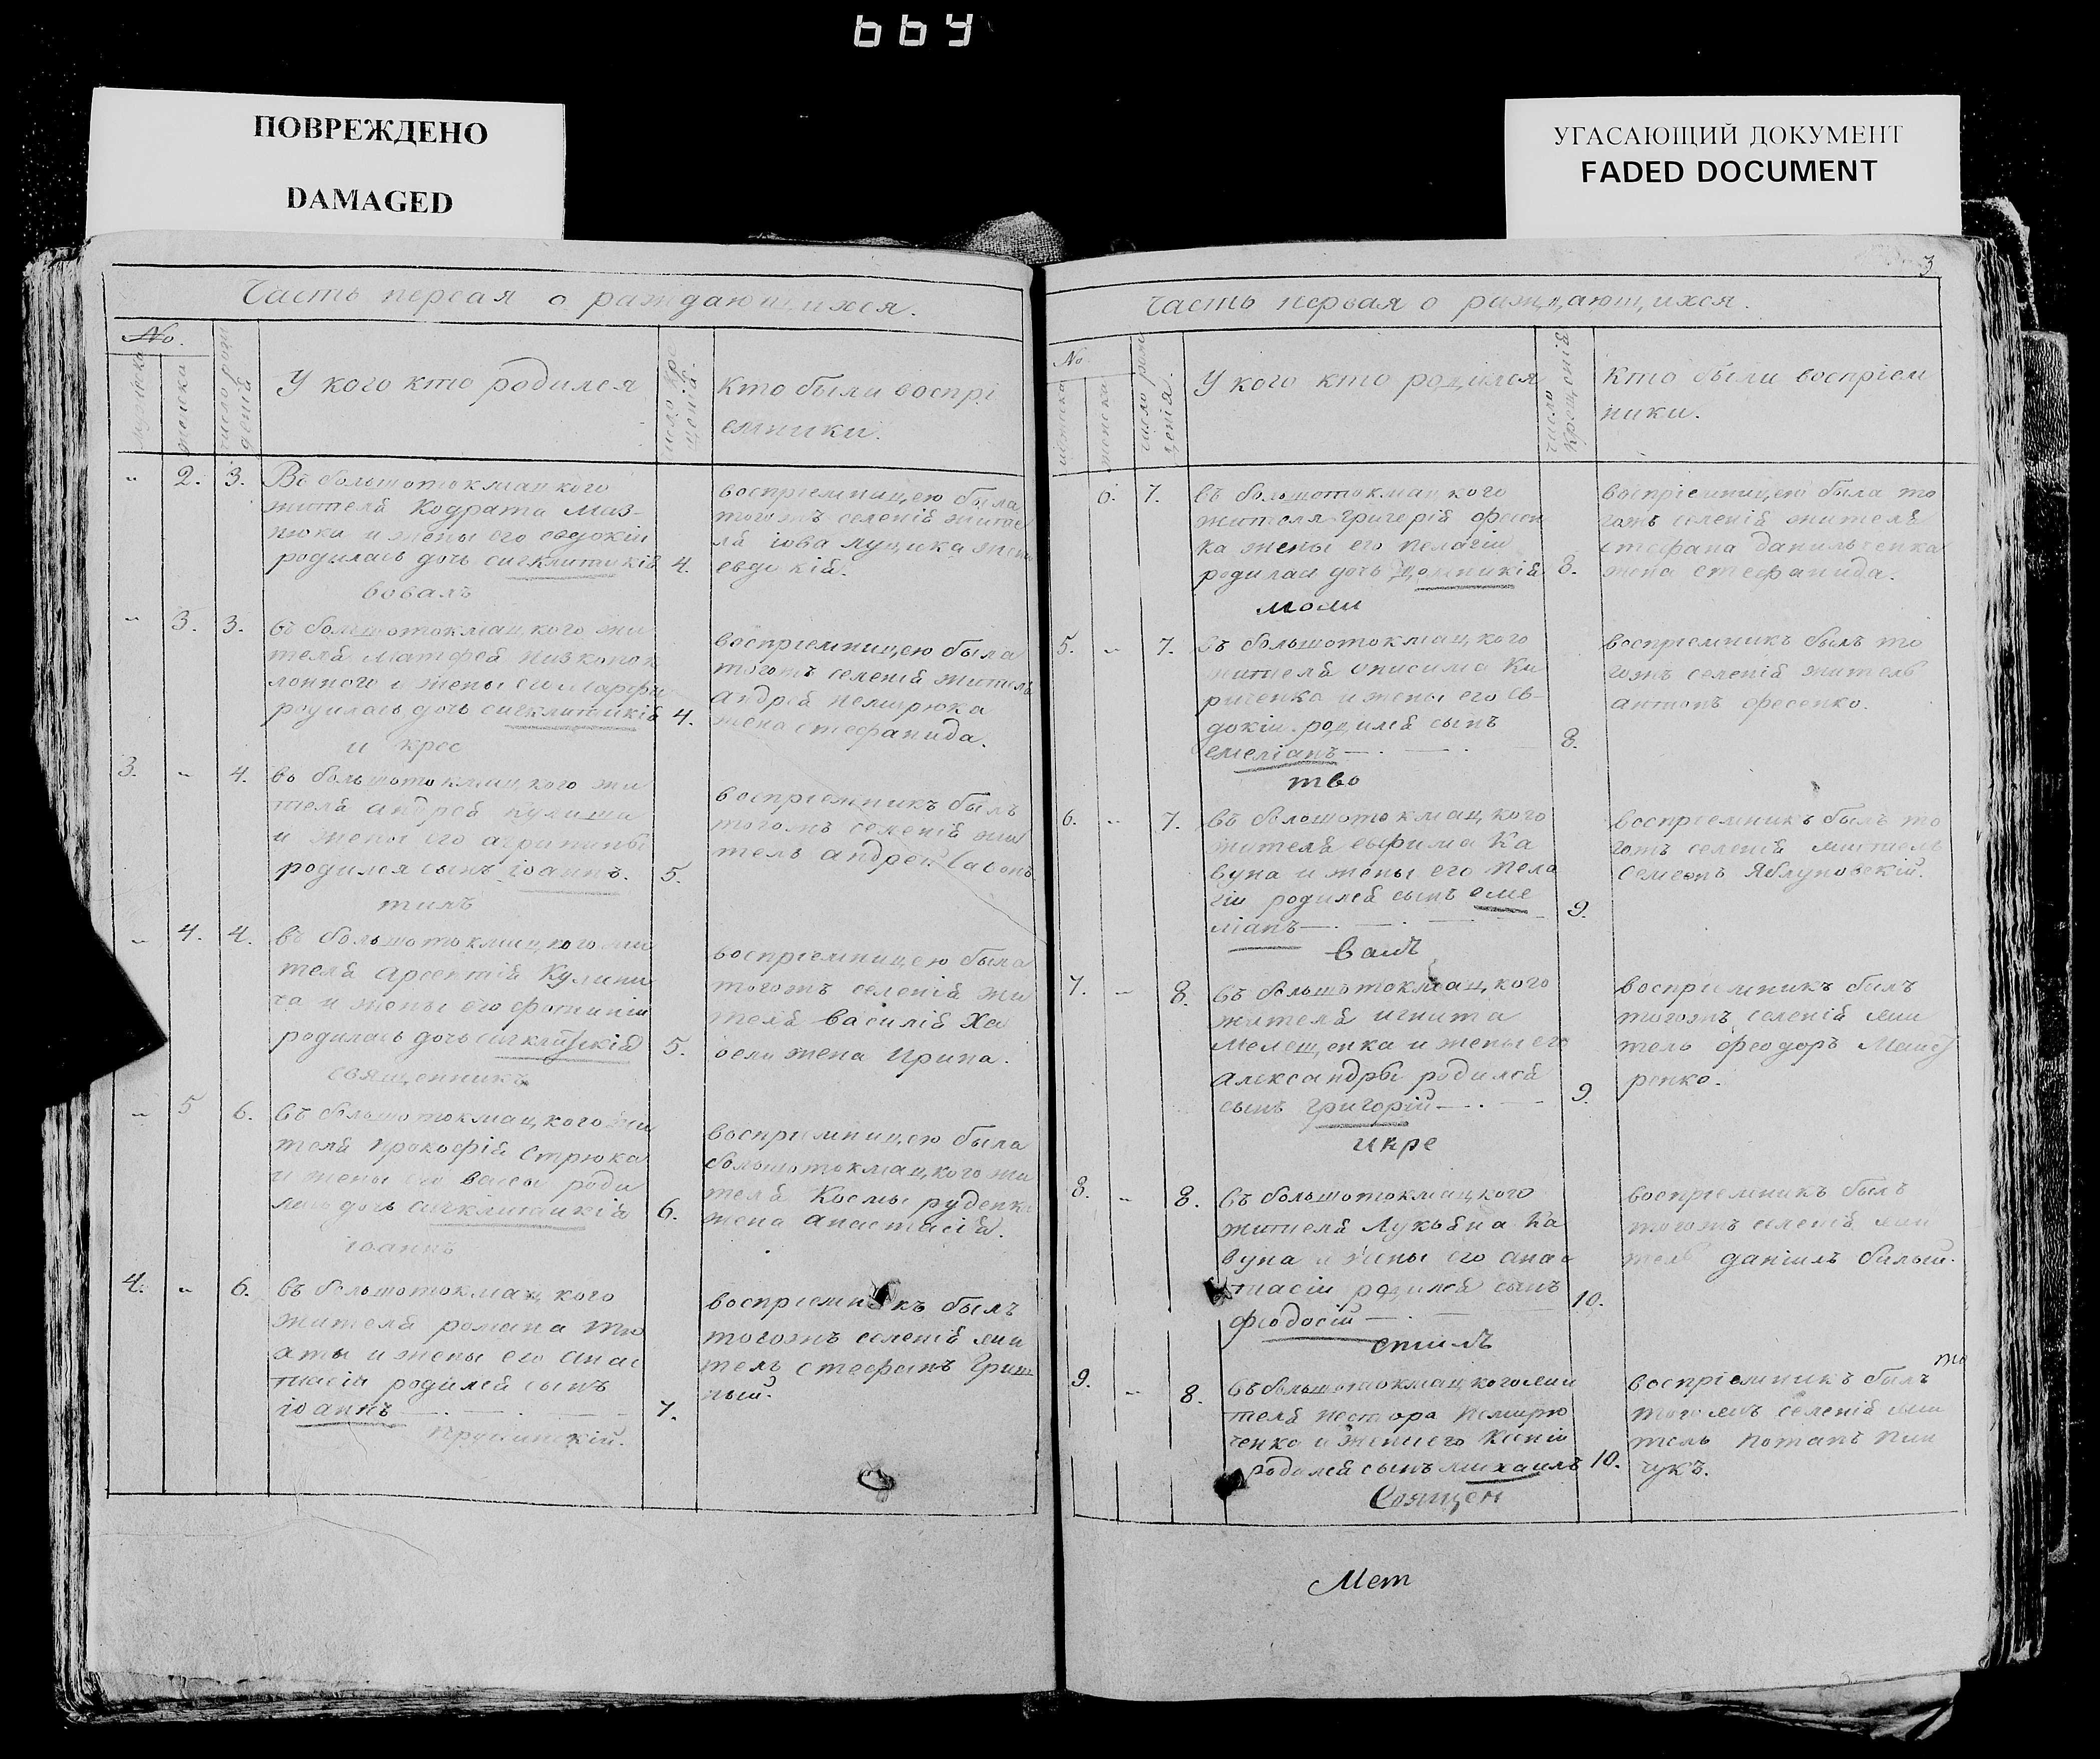 664
ПОВРЕЖДЕНО
DAMAGED
УГАСАЮЩИЙ ДОКУМЕНТ
FADED DOCUMENT
Часть первая о раждающихся.
No.
мужеска
женска
число рож
денія
У кого кто родился
число кре
щенія.
Кто были воспрі
емники.
" 2. 3.
Въ большотокмацкого
жителя Кодрата Маз-
нюка и жены его евдокіи
родилась дочь сигклитикія
4.
восприемницею была
тогожъ селенія жите
ля іова луцика жена
евдокія.
вовалъ
" 3. 3.
въ большотокмацкого жи
теля Матфея Низкопок
лонного и жены его марфы
родилась дочь сигклитикія
4.
восприемницею была
тогожъ селенія житель
андрея немирюка
жена стефанида.
и крес
3. " 4.
въ большотокмацкого жи
теля андрея кулиша
и жены его агрипины
родился сынъ іоаннъ.
5.
восприемникъ былъ
тогожъ селенія жи
тель андрей
тилъ
" 4. 4.
въ большотокмацкого жи
теля арсентія Кулини
ча и жены его фотиніи
родилась дочь сигклитикія
5.
восприемницею была
тогожъ селенія жи
теля василія
жена ирина.
священникъ
" 5 6.
въ большотокмацкого жи
теля прокофія Стрюка
и жены его вассы роди
лась дочь сигклитикія
6.
восприемницею была
большотокмацкого жи
теля Космы руденка
жена анастасія.
іоаннъ
4. " 6.
въ большотокмацкого
жителя романа тю
ати и жены его анас
тасіи родился сынъ
іоаннъ
7.
восприемникъ былъ
тогожъ селенія жи
тель стефанъ Гриш
ный.
Часть первая о раждающихся.
3
No
мужеска
женска
число рож
денія.
У кого кто родился
число
крещенія
Кто были воспріем
ники.
6. 7.
въ большотокмацкого
жителя григорія фесен
ка жены его пелагіи
родилась дочь домникія
8.
воспріемницею была то
гожъ селенія жителя
стефана данильченка
жена стефанида.
моли
5. " 7.
въ большотокмацкого
жителя онисима Ки
риченка и жены его ев-
докіи родился сынъ
емеліанъ
8.
воспріемникъ былъ то
гожъ селенія житель
антонъ фесенко.
тво
6. " 7.
въ большотокмацкого
жителя ефима Ка
вуна и жены его пела
гіи родился сынъ еме
ліанъ
9.
воспріемникъ былъ то
гожъ селенія житель
Семеонъ Яблуновскій.
валъ
7. " 8.
въ большотокмацкого
жителя игнита
Мелещенка и жены его
александры родился
сынъ григорій
9.
воспріемникъ былъ
тогожъ селенія жи
тель феодоръ
ренко.
икре
8. " 8.
въ большотокмацкого
жителя Лукьяна Ка
вуна и жены его анас
тасіи родился сынъ
феодосій
10.
воспріемникъ былъ
тогожъ селенія жи
тель даніилъ билый.
стилъ
9. " 8.
въ большотокмацкого жи
теля нестора Немирю
ченка и жены его Ксеніи
родился сынъ михаилъ
10.
воспріемникъ былъ
тогожъ селенія жи
тель потапъ пин
чукъ.
Священ
Мет